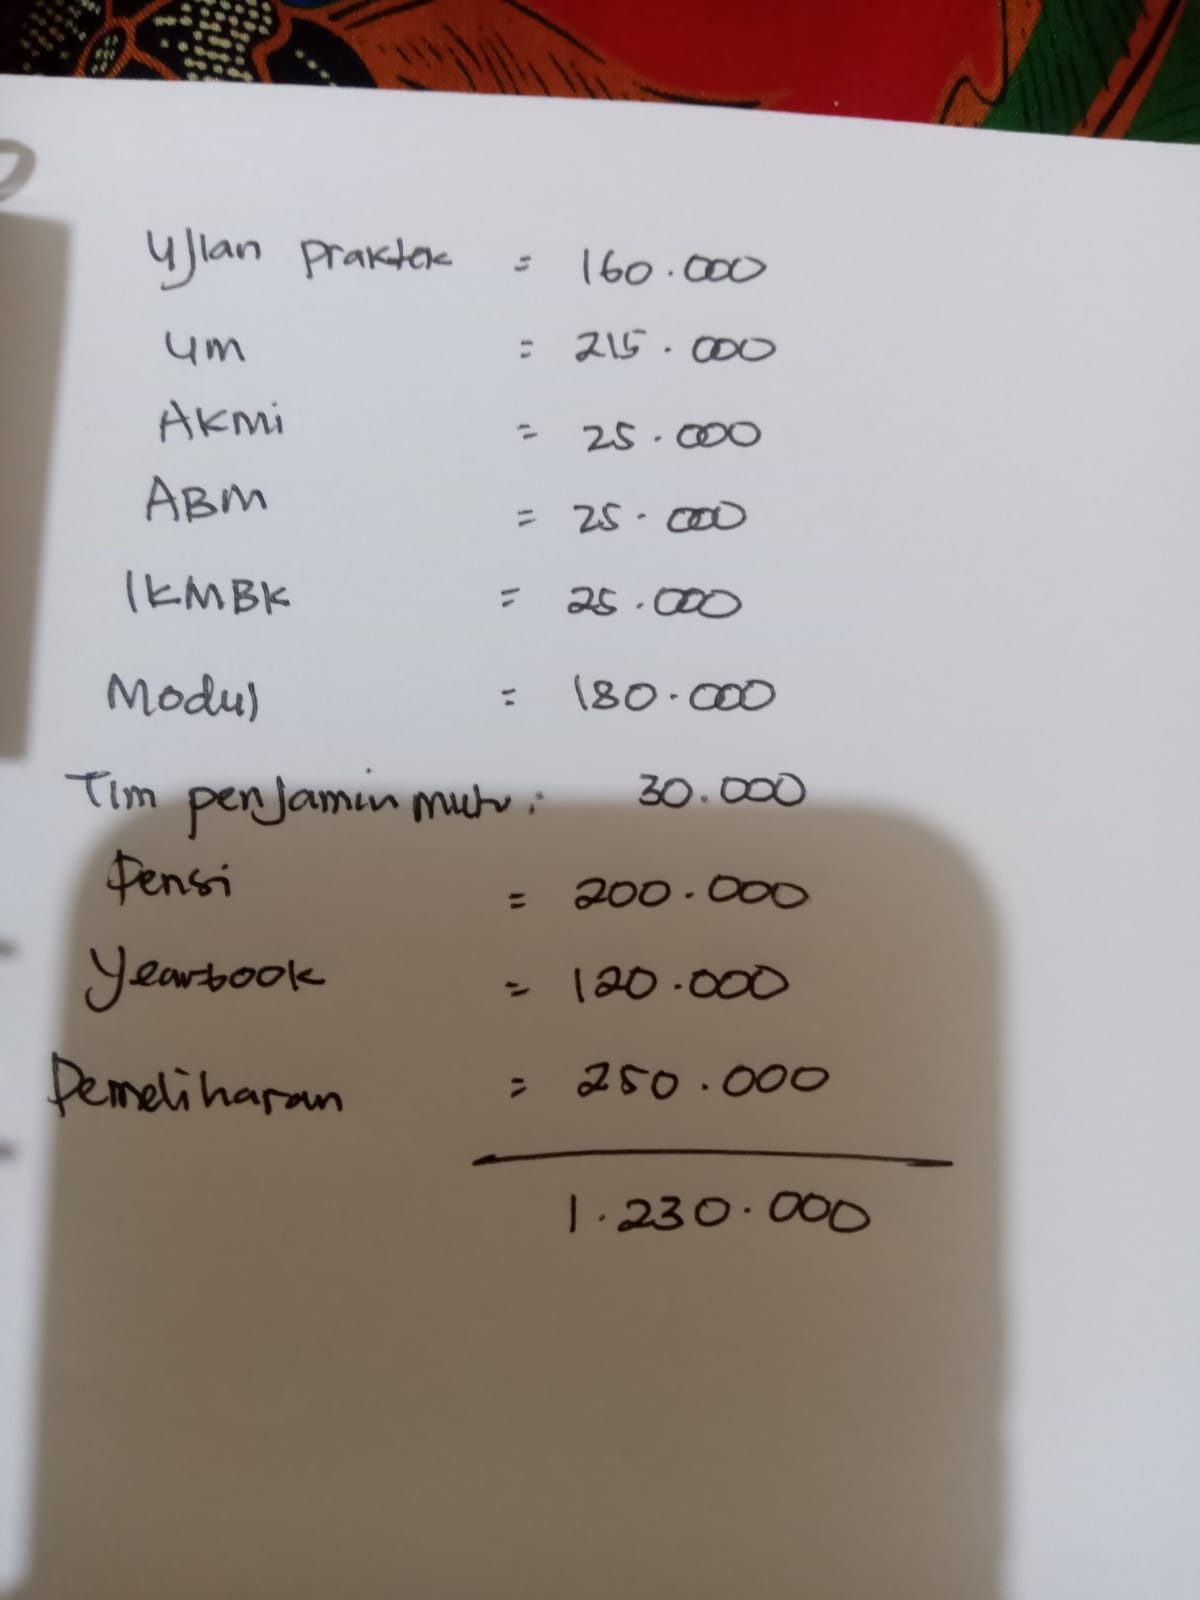 Ujian Praktek = 160.000
UM = 215.000
AKMI = 25.000
ABM = 25.000
IKMBK = 25.000
Modul = 180.000
Tim penjamin mutu : 30.000
Pensi = 200.000
Yearbook = 120.000
Pemeliharan = 250.000
1.230.000